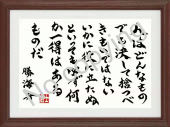 人はどんなもの
でも決して捨つべ
きものではない
いかに役に立たぬ
といっても必ず何
か一得はある
ものだ
勝海舟